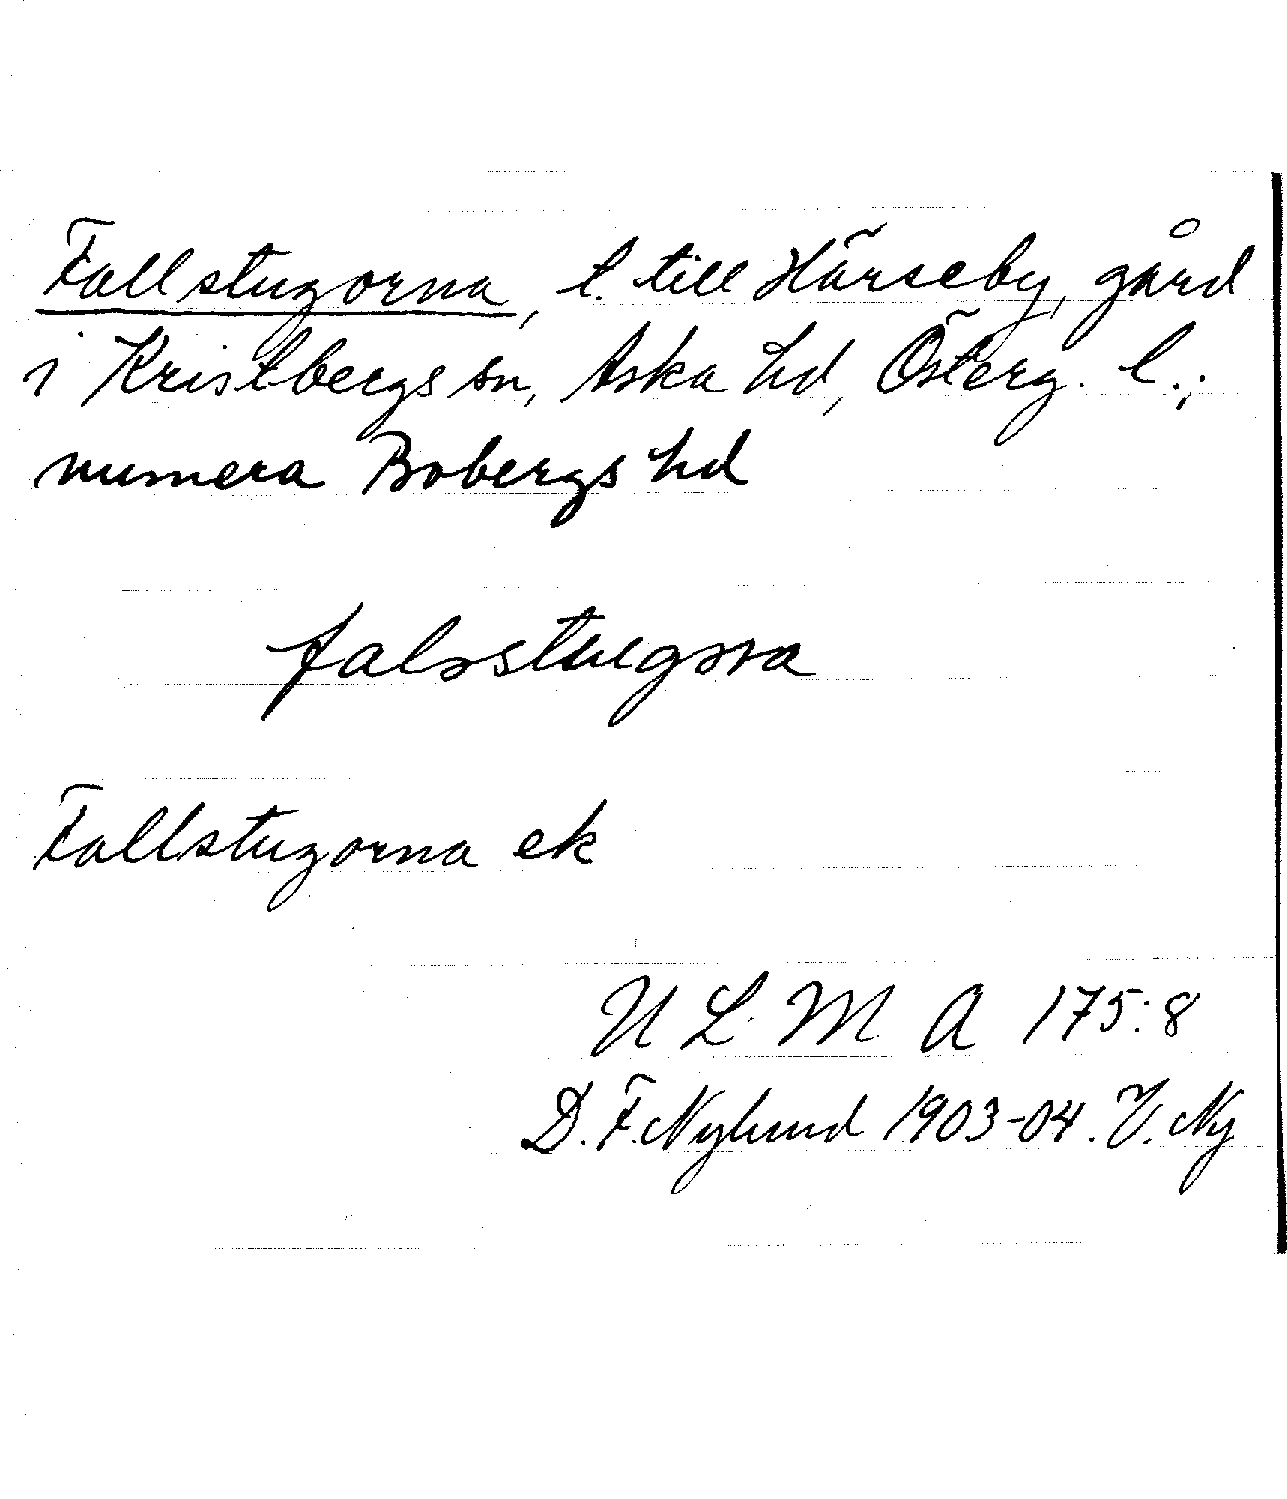 Fallstugorna, t. till Härseby, gård
i Kristbergs sn, Aska hd, Österg. l.;
numera Bobergs hd
falsstugora
Fallstugorna ek
U L M A 175:8
D. F. Nylund 1903-04. V. Ny